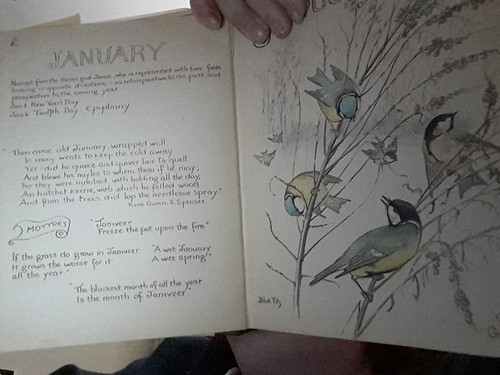 JANUARY
Named from the Roman god Janus, who is represented with two faces
looking in opposite directions, — as retrospective to the past, and
prospective to the coming year.
Jan 1 New Year's Day
Jan 6 Twelfth Day Epiphany
"Then came old January, wrapped well
In many weeds to keep the cold away
Yet did he quake and quiver like to quell
And blowe his nayles to warm them if he may:
For they were numb'd with holding all the day
An hatchet keene, with which he felled wood
And from the trees did lop the needlesse spray."
Faerie Queene, E. Spenser
MOTTOES
"Janiveer
Freeze the pot upon the fire"
If the grass do grow in Janiveer
It grows the worse for it
all the year."
"A wet January
A wet Spring"
"The blackest month of all the year
Is the month of Janiveer"
Blue Tits